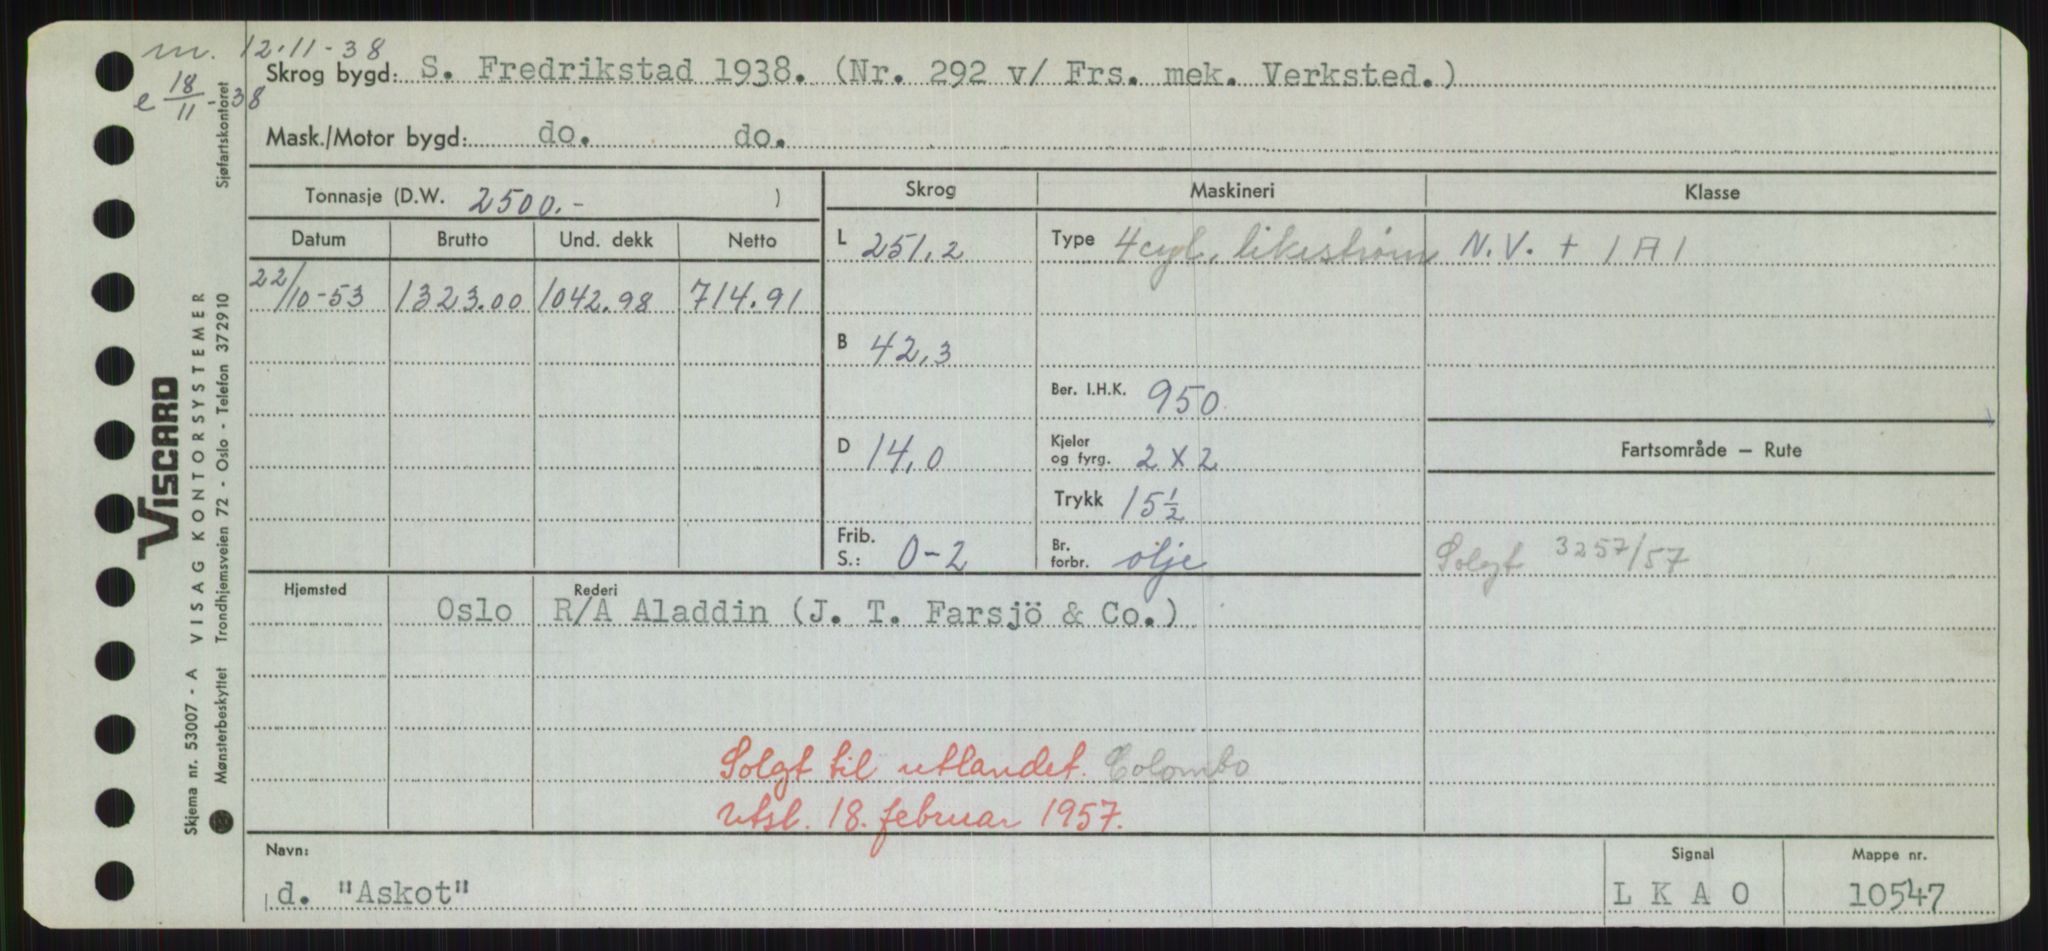 m. 12.11-38
e 18/11-38
Skrog bygd: S. Fredrikstad 1938. (Nr. 292 v/ Frs. mek. Verksted.)
Mask./Motor bygd: do. do.
Tonnasje (D.W. 2500.- )
Skrog
Maskineri
Klasse
Datum Brutto Und. dekk Netto
22/10-53 1323.00 1042.98 714.91
L 251,2
B 42,3
D 14,0
Frib. S.: 0-2
Type 4 cyl. likestrøm
Ber. I.H.K. 950
Kjeler og fyrg. 2 X 2
Trykk 15½
Br. forbr. olje
N.V. + 1A1
Fartsområde – Rute
Solgt 3257/57
Hjemsted
Rederi
Oslo R/A Aladdin (J. T. Farsjö & Co.)
Solgt til utlandet. Colombo
utsl. 18. februar 1957.
Navn:
d. "Askot"
Signal
L K A O
Mappe nr.
10547
Sjøfartskontoret
VISCARD
Skjema nr. 53007 - A VISAG KONTORSYSTEMER
Mønsterbeskyttet Trondhjemsveien 72 - Oslo - Telefon 372910